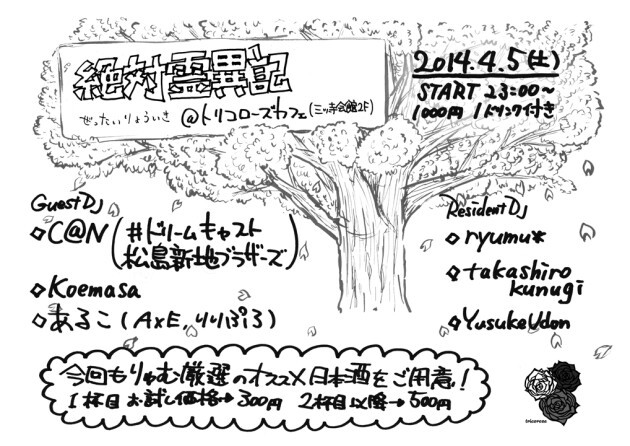 絶対霊異記
ぜったいりょういき @トリコローズカフェ(三ッ寺会館2F)
2014.4.5(土)
START 23:00~
1000円 1ドリンク付き
Guest DJ
◇C@N(#ドリームキャスト
松島新地ブラザーズ)
◇Koemasa
◇あるこ(AxE, リリぷろ)
Resident DJ
◇ryumu*
◇takashiro
kunugi
◇YusukeUdon
今回もりゅむ厳選のオススメ日本酒をご用意!
1杯目お試し価格→300円 2杯目以降→500円
tricoroze